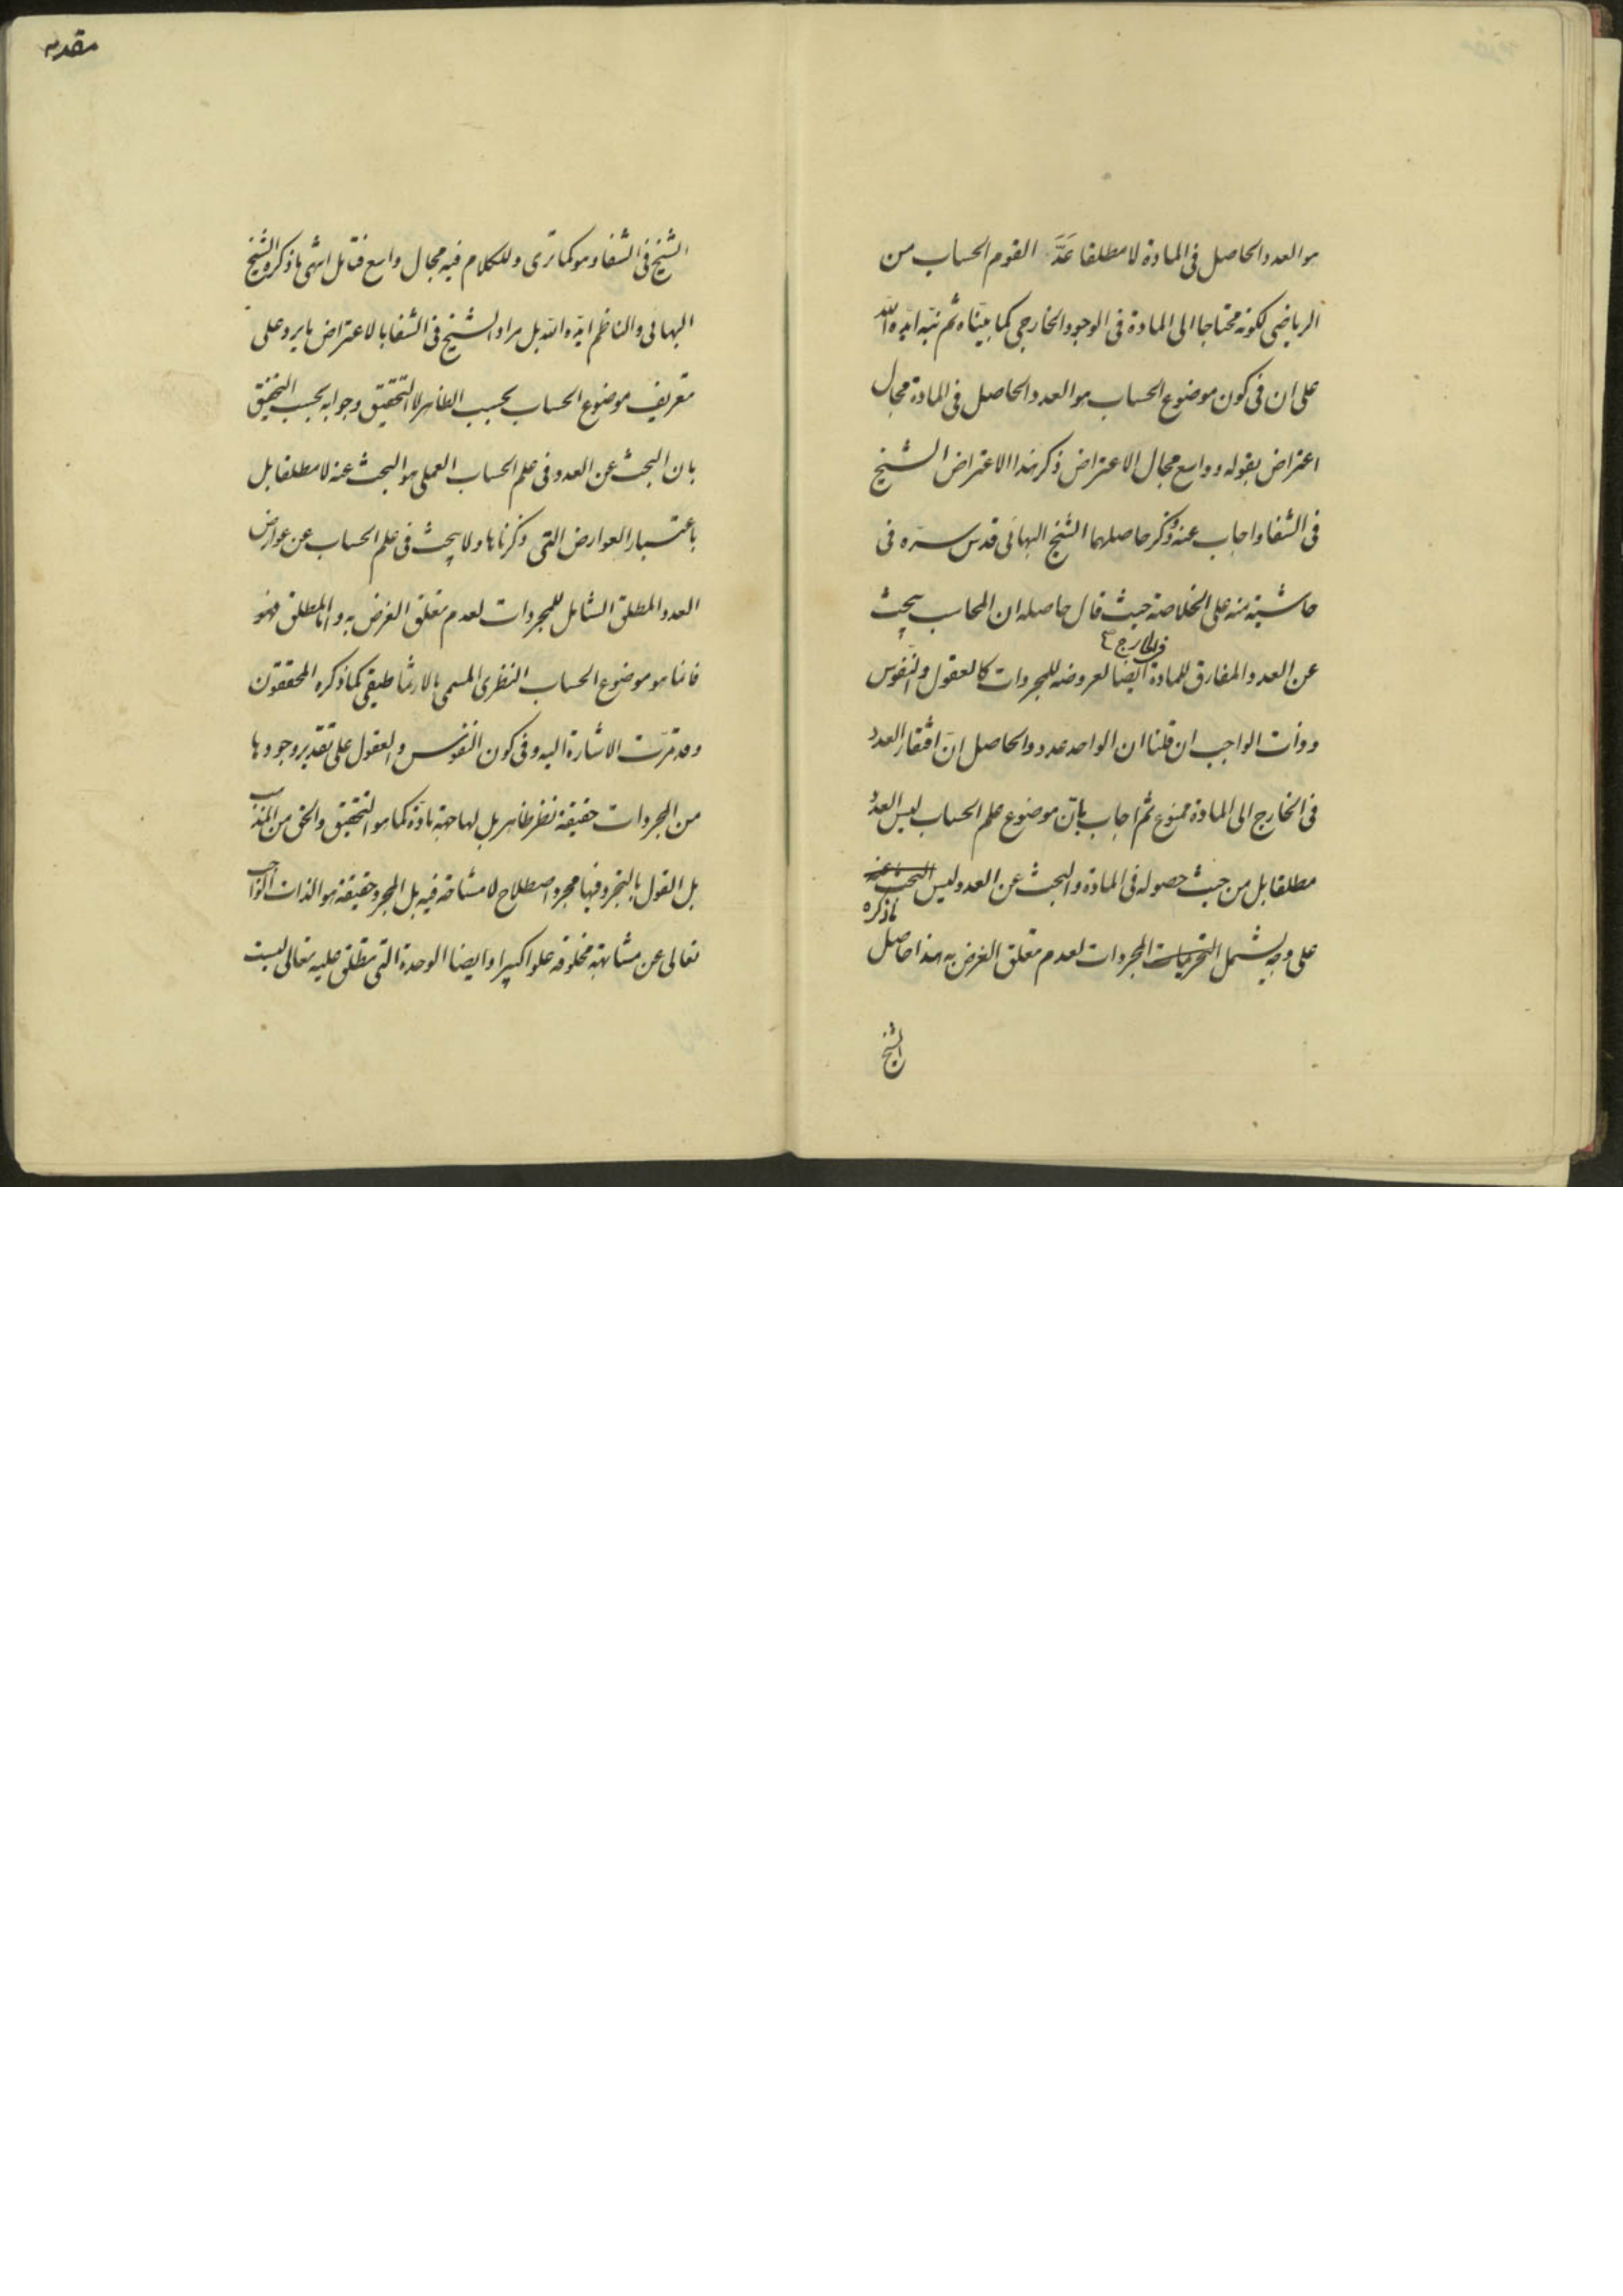 هو العدد الحاصل فى المادة لا مطلقا عَدَّ القوم الحساب من
الرياضى لكونه محتاجا الى المادة فى الوجود الخارجى كما بيّناه ثم نبّه ايّده اللّه
على ان فى كون موضوع الحساب هو العدد الحاصل فى المادة مجال
اعتراض بقوله وواسع مجال الاعتراض ذكر هذا الاعتراض الشيخ
فى الشفا واجاب عنه وذكر حاصلهما الشيخ البهائى قدس سرّه فى
حاشية منه على الخلاصة حيث قال حاصله ان المحاسب يبحث
فى الخارج
عن العدد المفارق للمادة ايضا لعروضه للمجردات كالعقول والنفوس
وذات الواجب ان قلنا ان الواحد عدد والحاصل انّ افتقار العدد
فى الخارج الى المادة ممنوع ثم اجاب بانّ موضوع علم الحساب ليس العدد
مطلقا بل من حيث حصوله فى المادة والبحث عن العدد ليس البحث عنه
ما ذكره
على وجه يشمل المجردات لعدم تعلق الغرض به هذا حاصل
الشيخ
مقدمه
الشيخ فى الشفا وهو كما ترى وللكلام فيه مجال واسع فتامل انتهى ما ذكره الشيخ
البهائى والناظم ايّده اللّه بل مراد الشيخ فى الشفا بالاعتراض ما يرد على
تعريف موضوع الحساب بحسب الظاهر لا التحقيق وجوابه بحسب التحقيق
بان البحث عن العدد فى علم الحساب العملى هو البحث عنه لا مطلقا بل
باعتبار العوارض التى ذكرناها ولا يبحث فى علم الحساب عن عوارض
العدد المطلق الشامل للمجردات لعدم تعلق الغرض به واما المطلق فهو
فانما هو موضوع الحساب النظرى المسمى بالارثماطيقى كما ذكره المحققون
وقد مرّت الاشارة اليه وفى كون النفوس والعقول على تقدير وجودها
من المجردات حقيقة نظر ظاهر بل لها جهة مادّة كما هو التحقيق والحق من المذهب
بل القول بالتجرد فيها مجرد اصطلاح لا مشاحة فيه بل المجرد حقيقة هو الذات الواجب
تعالى عن مشابهة مخلوقه علوا كبيرا وايضا الوحدة التى تطلق عليه تعالى ليست